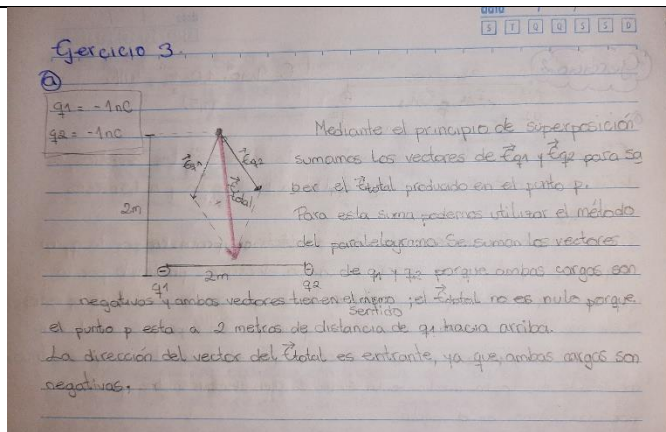 S T Q Q S S D
Ejercicio 3.
a
q1 = -1nC
q2 = -1nC
Mediante el principio de superposición
Eq1 Eq2 sumamos los vectores de Eq1 y Eq2 para sa
Etotal ber el Etotal producido en el punto p.
2m Para esta suma podemos utilizar el método
del paralelogramo. Se suman los vectores
2m de q1 y q2 porque ambas cargas son
q1 q2
negativas y ambos vectores tienen el mismo ; el Etotal no es nulo porque
sentido
el punto p esta a 2 metros de distancia de q1 hacia arriba.
La dirección del vector del Etotal es entrante, ya que, ambas cargas son
negativas.